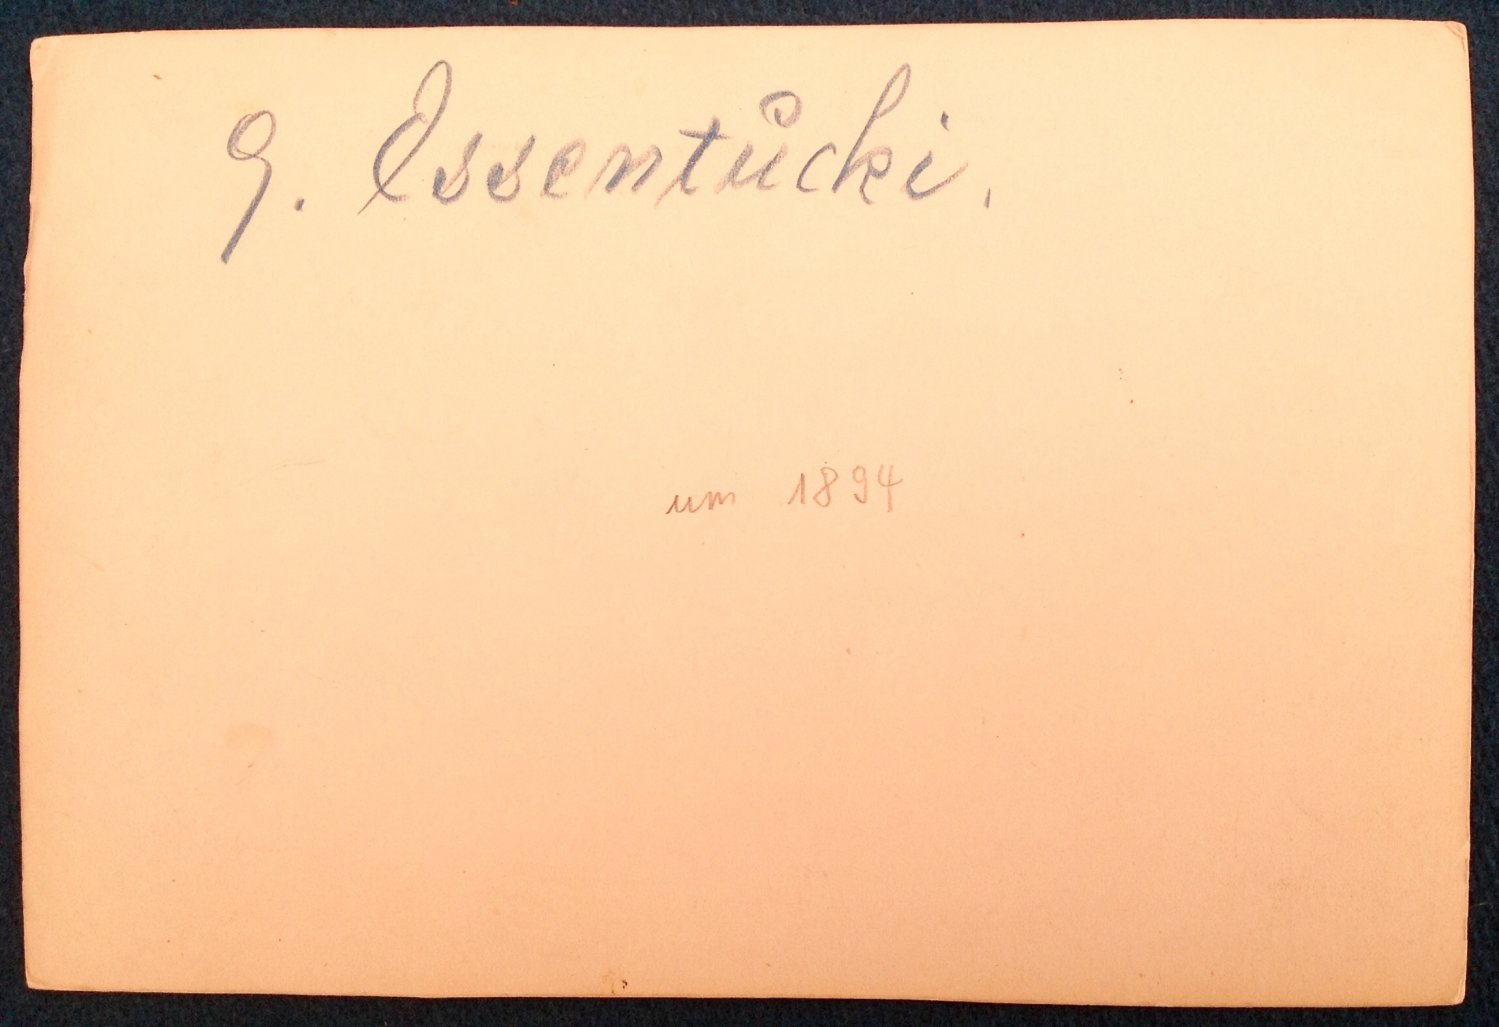 9. Essentucki.
um 1894